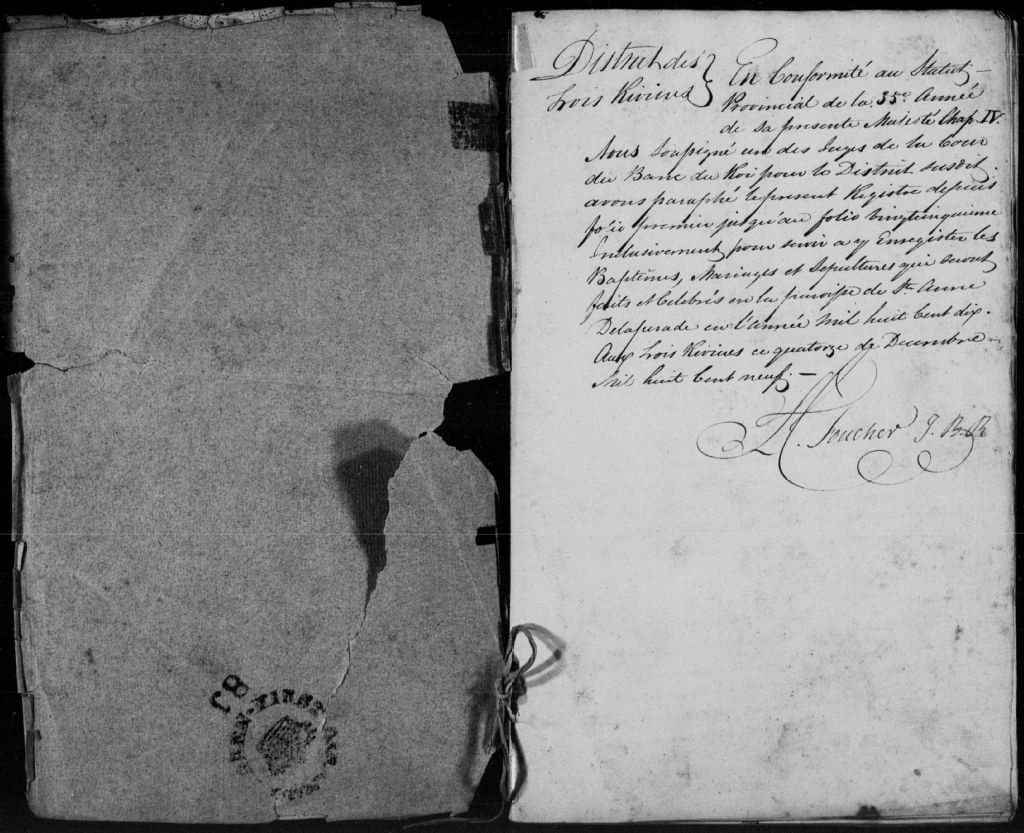 District des } En Conformité au Statut
Trois Rivieres } Provincial de la 35e. Année
de Sa presente Majesté Chap. IV.
Nous Soussigné un des Juges de la Cour
du Banc du Roi pour le District susdit
avons paraphé le present Registre depuis
folio premier jusqu'au folio vingtcinquieme
Inclusivement pour servir a y Enregistrer les
Baptêmes, Mariages et Sepultures qui seront
faits et Celebrés en la paroisse de Ste. Anne
Delaperade en l'année Mil huit Cent dix.
Aux Trois Rivieres ce quatorze de Decembre
Mil huit Cent neuf. —
L. C. Foucher J. B. R